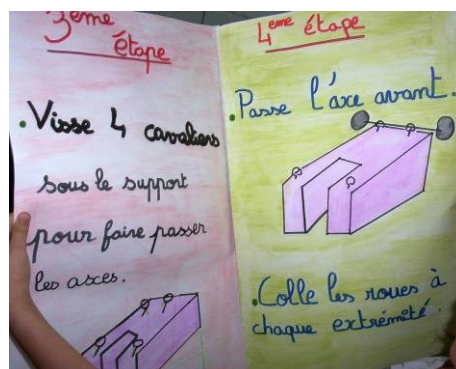 3ème
étape
.Visse 4 cavaliers
sous le support
pour faire passer
les axes.
4eme étape
.Passe l'axe avant.
.Colle les roues à
chaque extrémité.